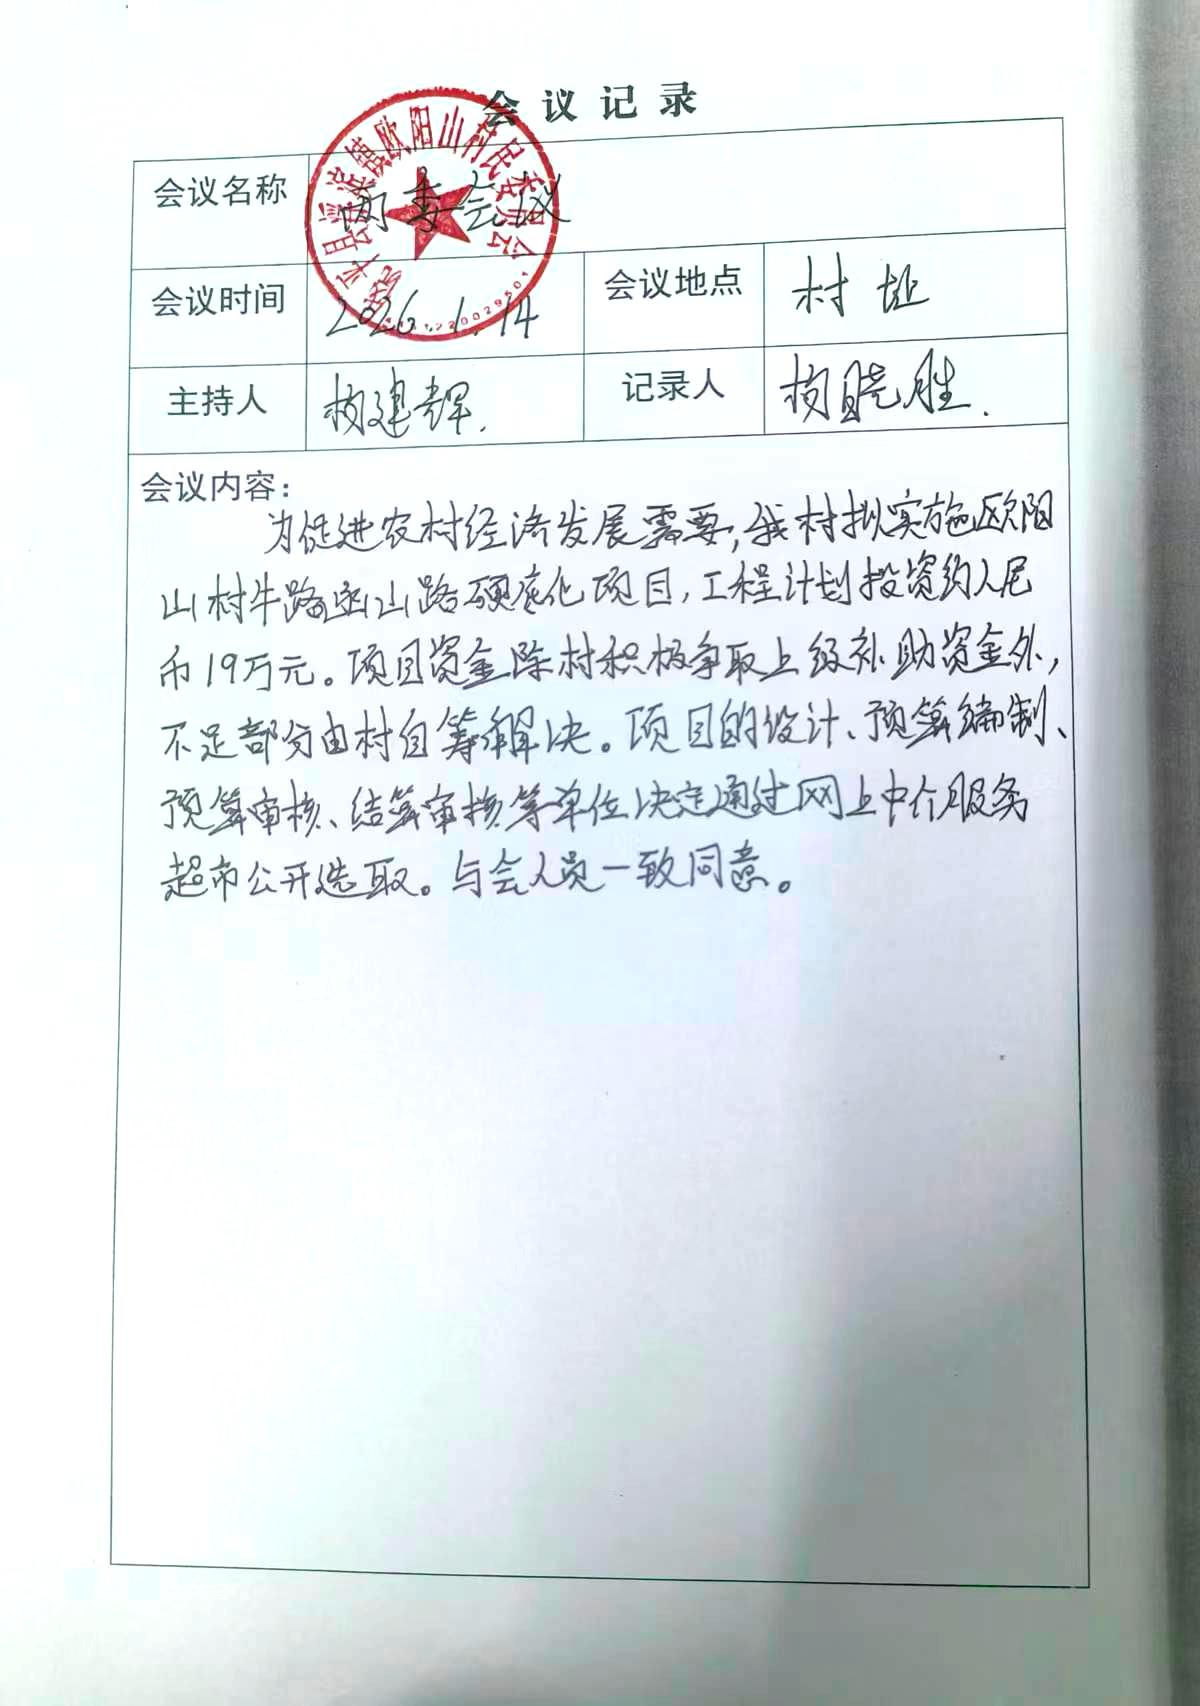 会议记录
会议名称 两委会议
会议时间 2026.1.14 会议地点 村址
主持人 杨建辉. 记录人 杨晓胜.
会议内容:
为促进农村经济发展需要,我村拟实施欧阳
山村牛路迳山路硬底化项目,工程计划投资约人民
币19万元。项目资金除村积极争取上级补助资金外,
不足部分由村自筹解决。项目的设计、预算编制、
预算审核、结算审核等单位决定通过网上中介服务
超市公开选取。与会人员一致同意。
镇欧阳山村民委员会